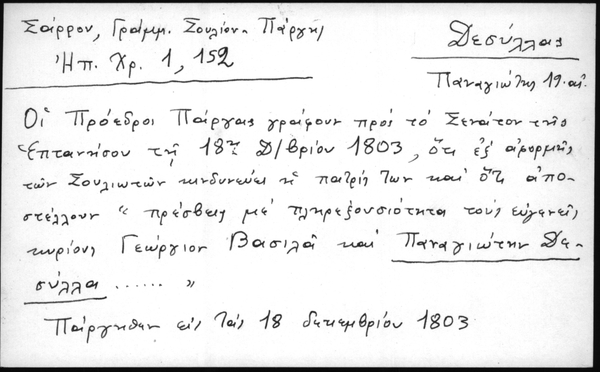 Σάρρου, Γράμμ. Σουλίου - Πάργης
Δεσύλλας
Ἠπ. Χρ. 1, 152
Παναγιώτης 19. αἰ.
Οἱ Πρόεδροι Πάργας γράφουν πρὸς τὸ Σενάτον τῆς
Ἑπτανήσου τῇ 18ῃ Δ/βρίου 1803, ὅτι ἐξ ἀφορμῆς
τῶν Σουλιωτῶν κινδυνεύει ἡ πατρίς των καὶ ὅτι ἀπο-
στέλλουν " πρέσβεις μὲ πληρεξουσιότητα τοὺς εὐγενεῖς
κυρίους Γεώργιον Βασιλᾶ καὶ Παναγιώτην Δε-
σύλλα ...... "
Πάργηθεν εἰς τὰς 18 δεκεμβρίου 1803